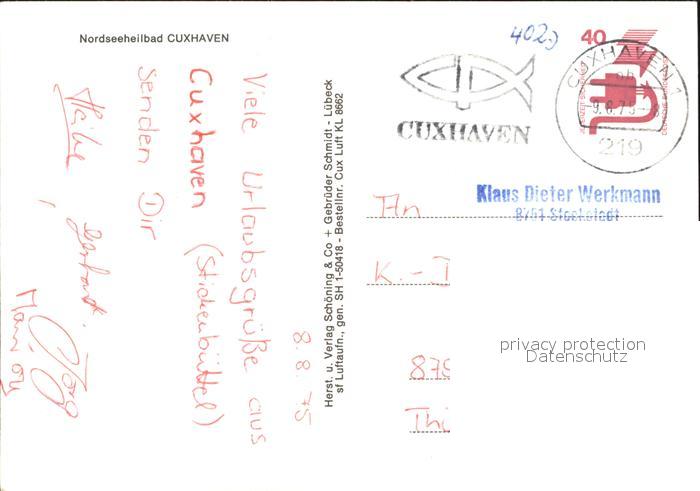 Nordseeheilbad CUXHAVEN
402.)
40
CUXHAVEN 1
-9.8.75
219
CUXHAVEN
Klaus Dieter Werkmann
8751 Stockstadt
8.8.75
Viele Urlaubsgrüße aus
Cuxhaven (Stickenbüttel)
senden Dir
Heike,
Gerhard,
Jörg
Marion
Herst. u. Verlag Schöning & Co + Gebrüder Schmidt - Lübeck
sf Luftaufn., gen. SH 1-50418 - Bestellnr. Cux Luft KL 8662
An
K.-
875
privacy protection
Datenschutz